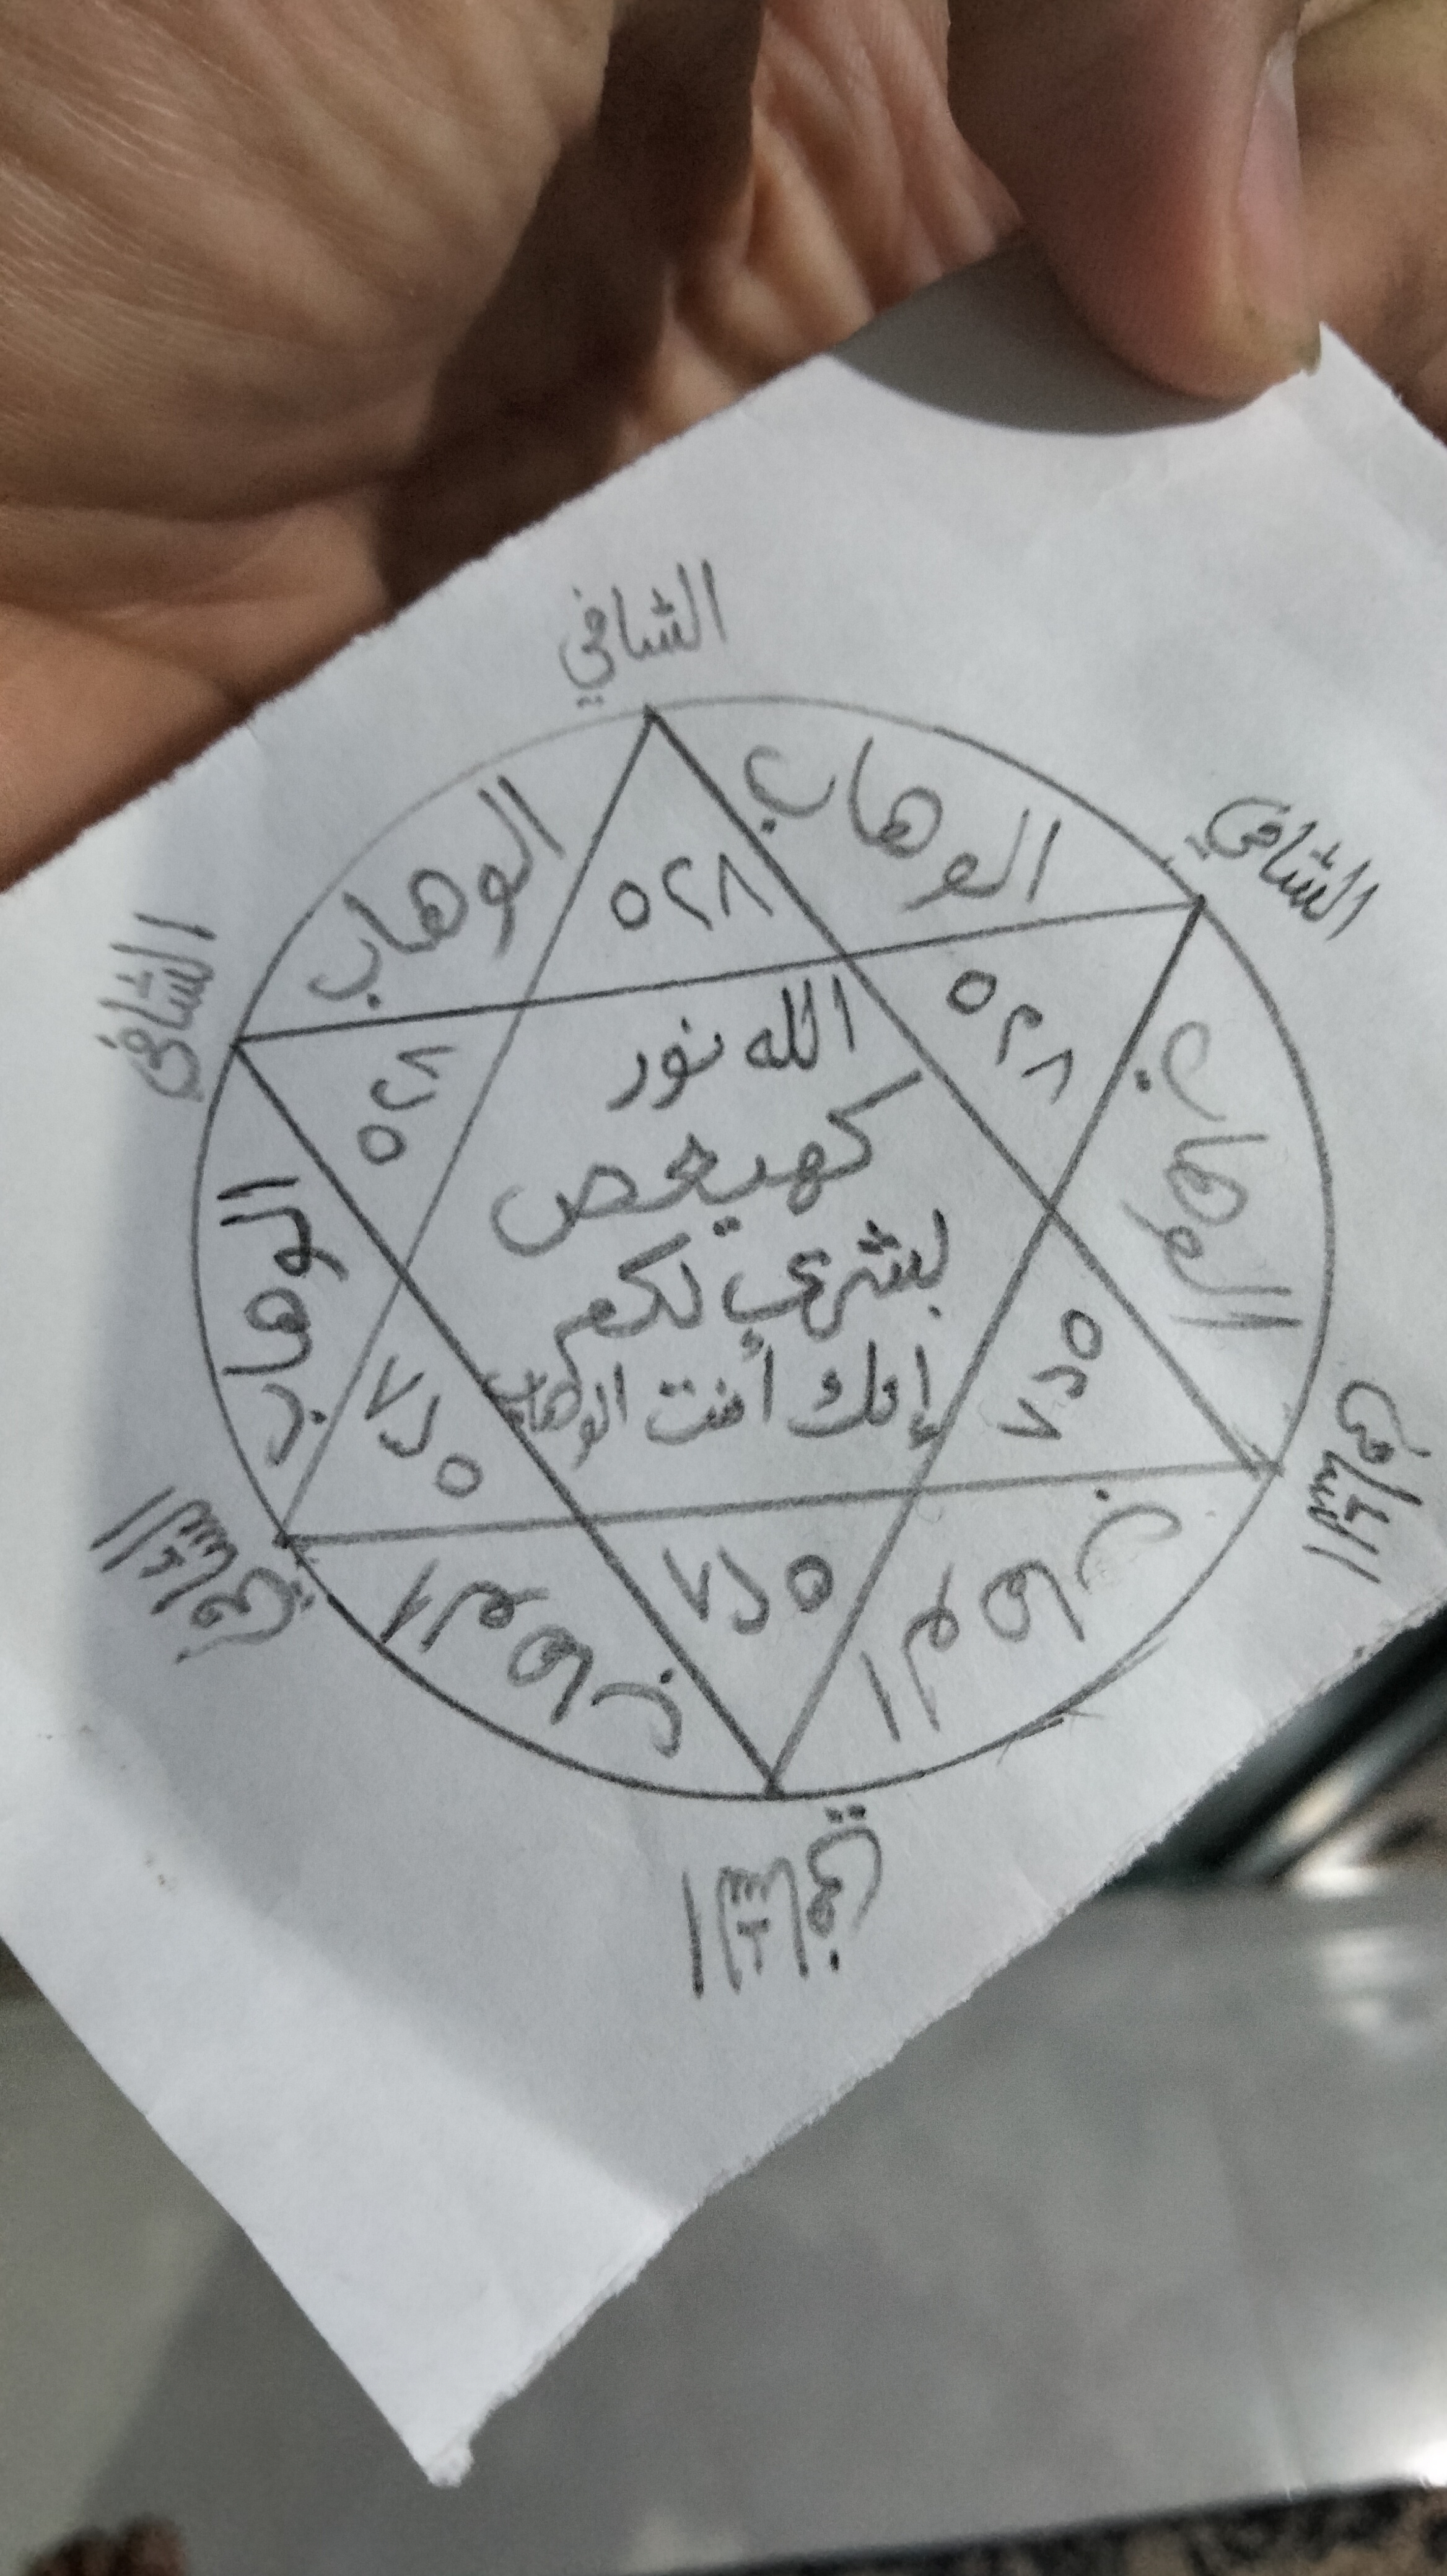 الشافي
الشافي
الشافي
الوهاب
الوهاب
٥٢٨
٥٢٨
٥٢٨
الله نور
كهيعص
بشرى لكم
إنك أنت الوهاب
الوهاب
الوهاب
٥٢٨
٥٢٨
٥٢٨
الوهاب
الوهاب
الشافي
الشافي
الشافي